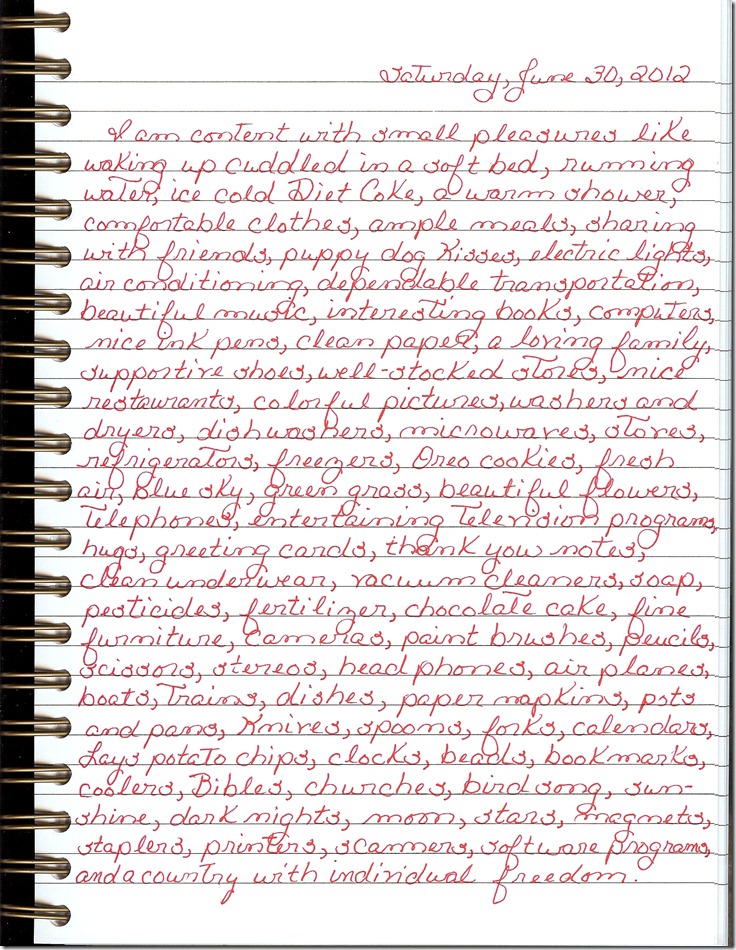 Saturday, June 30, 2012
I am content with small pleasures like
waking up cuddled in a soft bed, running
water, ice cold Diet Coke, a warm shower,
comfortable clothes, ample meals, sharing
with friends, puppy dog kisses, electric lights,
air conditioning, dependable transportation,
beautiful music, interesting books, computers,
nice ink pens, clean paper, a loving family,
supportive shoes, well-stocked stores, nice
restaurants, colorful pictures, washers and
dryers, dishwashers, microwaves, stoves,
refrigerators, freezers, Oreo cookies, fresh
air, blue sky, green grass, beautiful flowers,
telephones, entertaining television programs,
hugs, greeting cards, thank you notes,
clean underwear, vacuum cleaners, soap,
pesticides, fertilizer, chocolate cake, fine
furniture, cameras, paint brushes, pencils,
scissors, stereos, head phones, air planes,
boats, trains, dishes, paper napkins, pots
and pans, knives, spoons, forks, calendars,
Lays potato chips, clocks, beads, bookmarks,
coolers, Bibles, churches, bird song, sun-
shine, dark nights, moon, stars, magnets,
staplers, printers, scanners, software programs,
and a country with individual freedom.